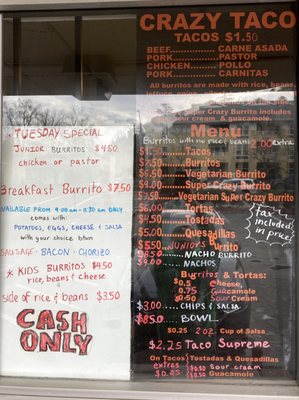 CRAZY TACO
TACOS $1.50
BEEF............ CARNE ASADA
PORK............ PASTOR
CHICKEN............ POLLO
PORK............ CARNITAS
All burritos are made with rice, beans
Super Crazy Burrito includes
sour cream & guacamole.
Menu
Burritos with no rice/beans 2.00 extra
Tacos
Burritos
Vegetarian Burrito
$9.00 Super Crazy Burrito
Vegetarian Super Crazy Burrito
Tortas
Tostadas
Quesadillas
$5.50 JUNIORS Burrito
NACHO BURRITO
NACHOS
(tax included in price)
Burritos & Tortas:
0.5 Cheese
0.75 Guacamole
0.50 Sour Cream
$3.00 CHIPS & SALSA
BOWL
$0.25 2 oz. Cup of Salsa
$2.25 Taco Supreme
On Tacos Tostadas & Quesadillas
extras Sour cream
Guacamole
* TUESDAY SPECIAL
JUNIOR BURRITOS $4.50
chicken or pastor
Breakfast Burrito $7.50
VAILABLE FROM 9:00 am - 11:30 am ONLY
comes with:
POTATOES, EGGS, CHEESE & SALSA
with your choice btwn
SAUSAGE - BACON - CHORIZO
* KIDS BURRITOS $4.50
rice, beans & cheese
side of rice & beans $3.50
CASH
ONLY